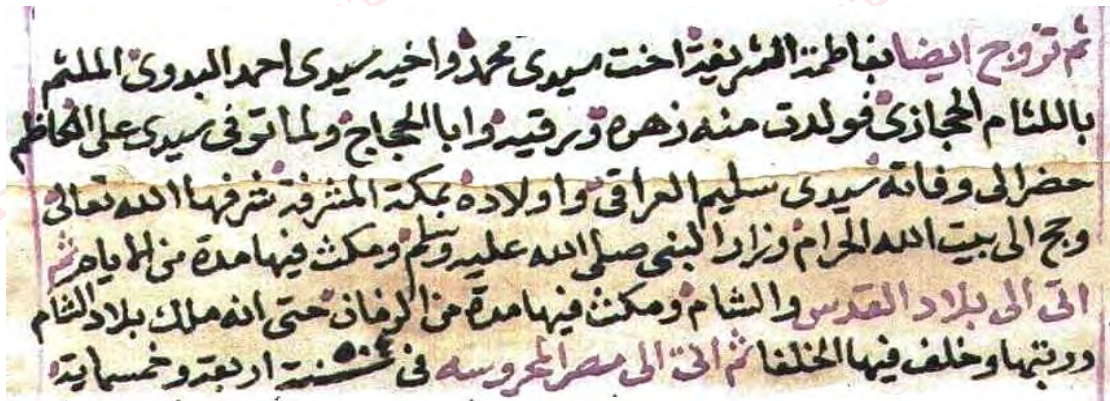 ثم تزوج ايضا بفاطمة الشريفة اخت سيدى محمد واخيه سيدى احمد البدوى الملثم
باللثام الحجازى فولدت منه زهرة ورقيه وابا الحجاج ولما توفى سيدى على الكاظم
حضر الى وفاته سيدى سليم العراقى واولاده بمكة المشرفة شرفها الله تعالى
وحج الى بيت الله الحرام وزار النبى صلى الله عليه وسلم ومكث فيها مدة من الايام ثم
اتى الى بلاد القدس والشام ومكث فيها مدة من الزمان حتى انه ملك بلاد الشام
ورتبها وخلف فيها الخلفا ثم اتى الى مصر المحروسه فى سنة ٥٠٤ اربعة وخمسماية